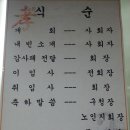 식 순
개 회 — 사회자
내빈소개 — 사회자
감사패전달 — 회장
이임사 — 전회장
취임사 — 회장
축하말씀 — 구청장
노인지회장